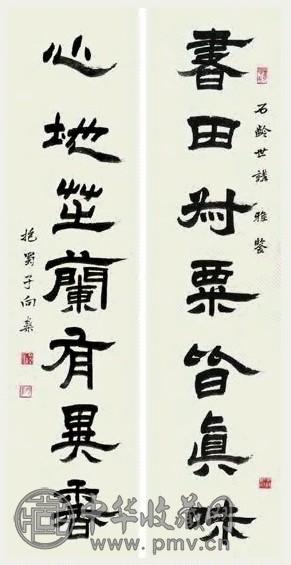 書田尗粟皆眞味
石齡世講雅鑒
心地芝蘭有異香
抱蜀子向燊
中华收藏网
www.pmv.cn